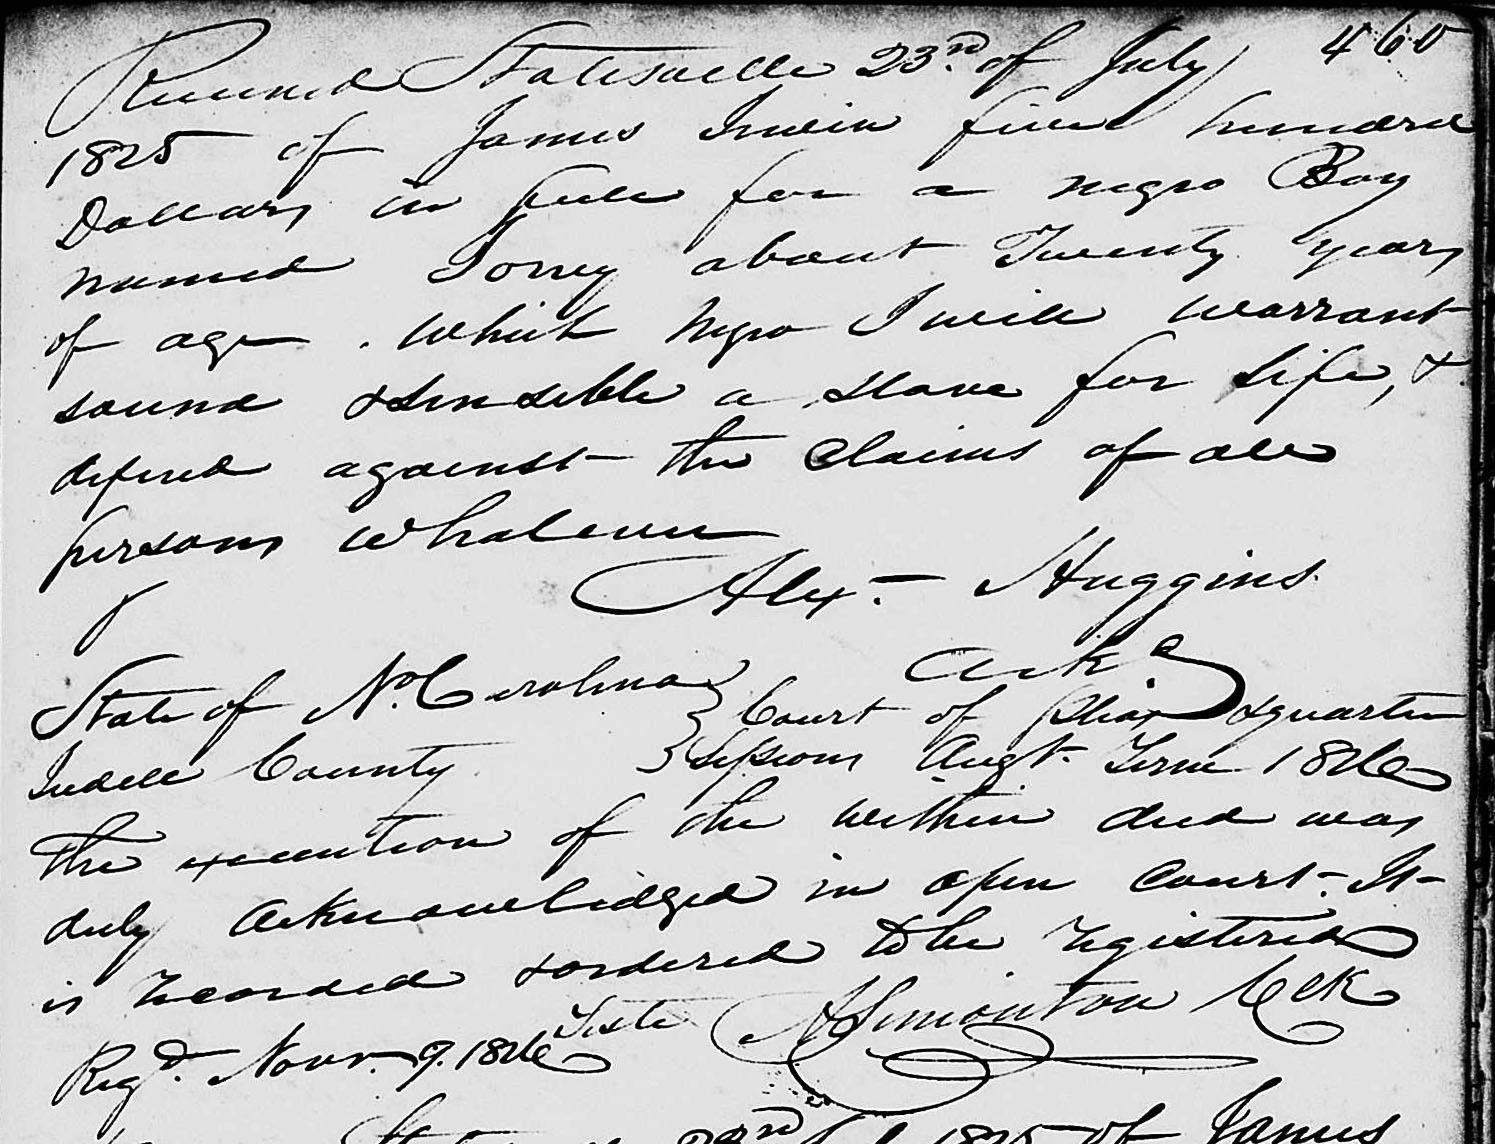 460
Received Statesville 23rd of July
1825 of James Irwin five hundred
Dollars in full for a negro Boy
named Torrey about Twenty years
of age. Which Negro I will warrant
sound & sensible a slave for life, &
defend against the Claims of all
persons whatever
Alexr. Huggins
Ackd
State of No. Carolina } Court of Pleas & quarter
Iredell County } Sessions Augt. Term 1826
The execution of the within deed was
duly acknowledged in open Court. It
is recorded & ordered to be registered
Teste A Simonton Clk
Regd. Novr. 9. 1826
23rd 1825 of James